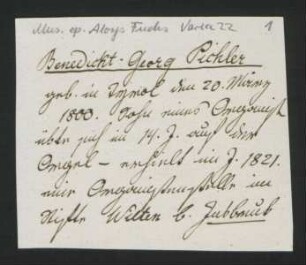 Mus. ep. Aloys Fuchs Varia 22 1
Benedickt-Georg Pichler
geb. in Tyrol den 20. März
1800. Sohn eines Organist
übte sich im 14. J. auf der
Orgel – erhielt im J. 1821.
eine Organistenstelle im
Stifte Wilten b. Insbruck